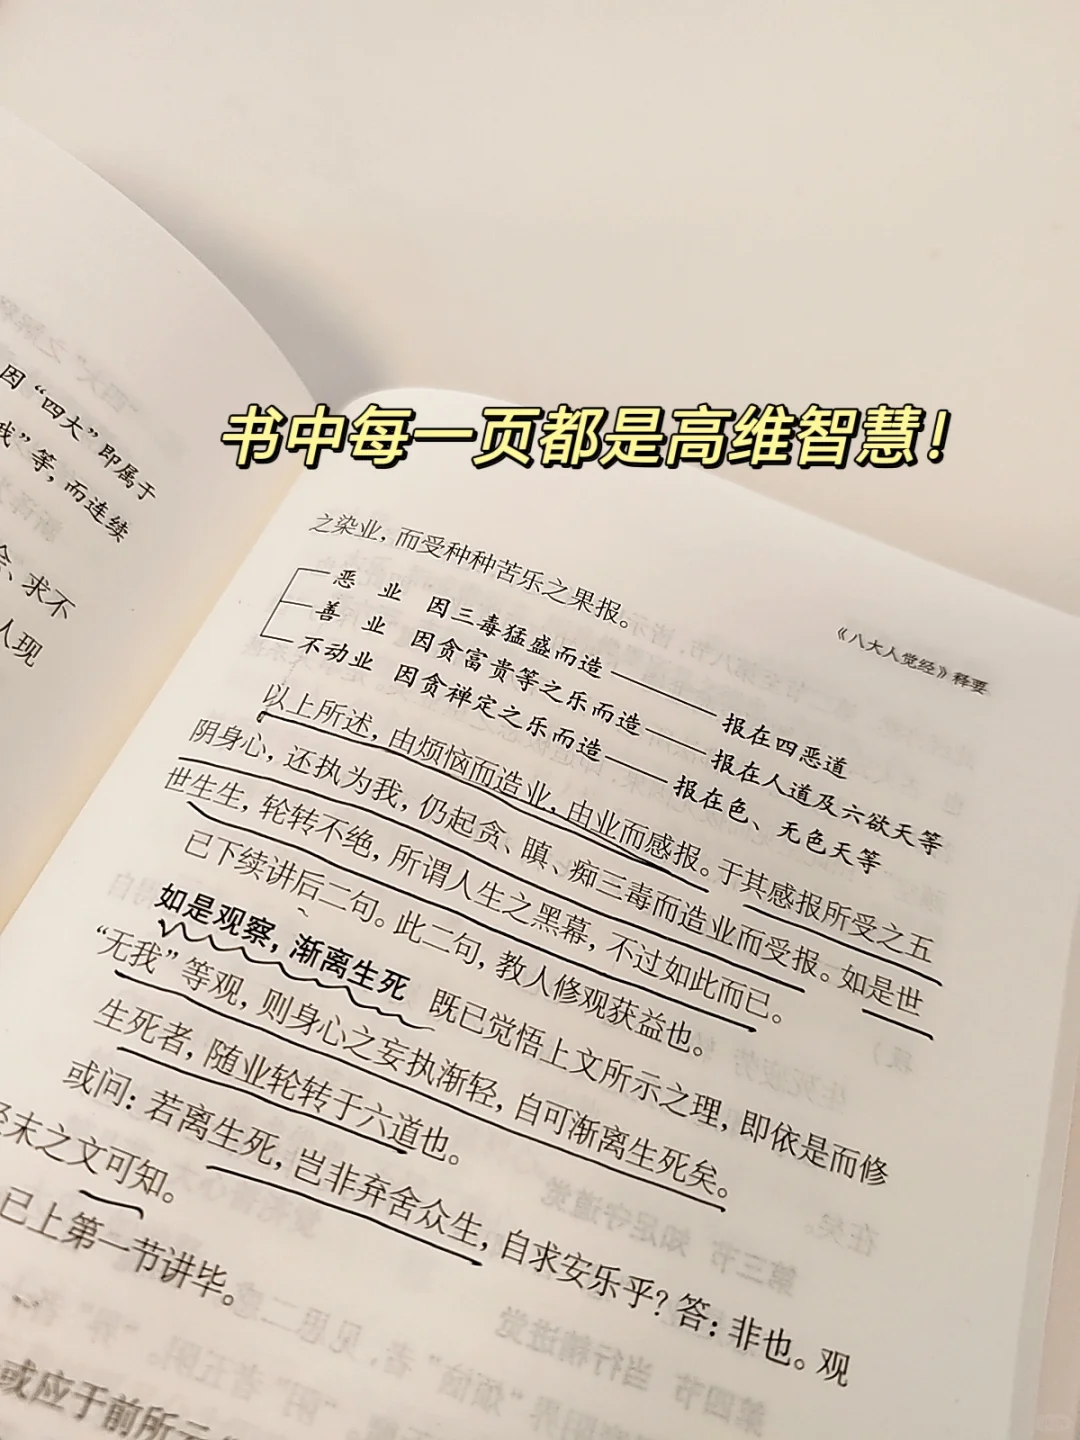 书中每一页都是高维智慧！
因“四大”即属于
我”等，而连续
求不
人现
《八大人觉经》释要
之染业，而受种种苦乐之果报。
恶 业 因三毒猛盛而造——报在四恶道
善 业 因贪富贵等之乐而造——报在人道及六欲天等
不动业 因贪禅定之乐而造——报在色、无色天等
以上所述，由烦恼而造业，由业而感报。于其感报所受之五
阴身心，还执为我，仍起贪、瞋、痴三毒而造业而受报。如是世
世生生，轮转不绝，所谓人生之黑幕，不过如此而已。
已下续讲后二句。此二句，教人修观获益也。
如是观察，渐离生死 既已觉悟上文所示之理，即依是而修
“无我”等观，则身心之妄执渐轻，自可渐离生死矣。
生死者，随业轮转于六道也。
或问：若离生死，岂非弃舍众生，自求安乐乎？答：非也。观
末之文可知。
已上第一节讲毕。
或应于前所云